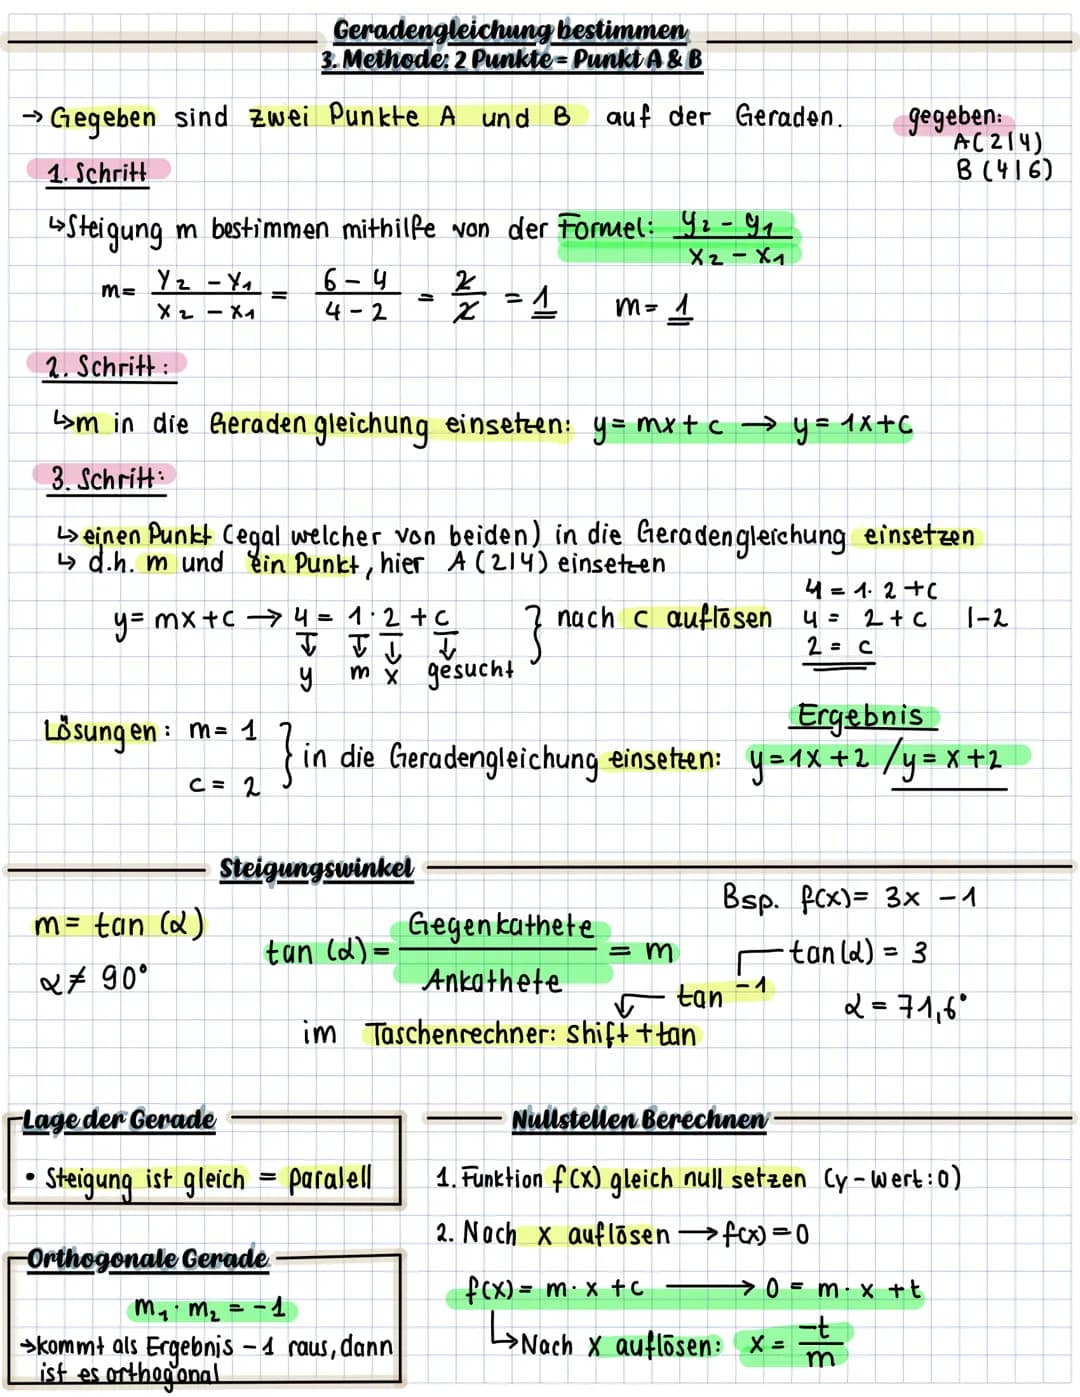 Geradengleichung bestimmen
3. Methode: 2 Punkte = Punkt A & B
→ Gegeben sind zwei Punkte A und B auf der Geraden.
gegeben:
A(2|4)
B(4|6)
1. Schritt
↳ Steigung m bestimmen mithilfe von der Formel: (y₂ - y₁) / (x₂ - x₁)
m = (y₂ - y₁) / (x₂ - x₁) = (6 - 4) / (4 - 2) = 2/2 = 1   m = 1
2. Schritt:
↳ m in die Geradengleichung einsetzen: y = mx + c → y = 1x + c
3. Schritt:
↳ einen Punkt (egal welcher von beiden) in die Geradengleichung einsetzen
↳ d.h. m und ein Punkt, hier A(2|4) einsetzen
y = mx + c → 4 = 1 · 2 + c } nach c auflösen
y m x gesucht
4 = 1 · 2 + c
4 = 2 + c |-2
2 = c
Lösungen: m = 1
c = 2
} in die Geradengleichung einsetzen:
Ergebnis
y = 1x + 2 / y = x + 2
Steigungswinkel
m = tan (α)
α ≠ 90°
tan (α) = Gegenkathete / Ankathete = m
Bsp. f(x) = 3x - 1
tan(α) = 3
tan⁻¹
α = 71,6°
im Taschenrechner: Shift + tan
Lage der Gerade
• Steigung ist gleich = paralell
Orthogonale Gerade
m₁ · m₂ = -1
→ kommt als Ergebnis -1 raus, dann
ist es orthogonal
Nullstellen Berechnen
1. Funktion f(x) gleich null setzen (y-Wert: 0)
2. Nach x auflösen → f(x) = 0
f(x) = m · x + c → 0 = m · x + t
↳ Nach x auflösen: x = -t / m